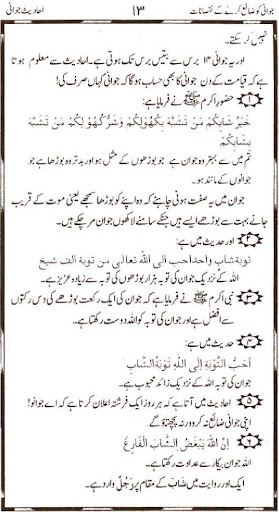 جوانی کو ضائع کرنے کے نقصانات ۱۳ احادیث جوانی
نہیں کر سکتے۔
اور یہ جوانی ۱۴ برس سے بتیس برس تک ہوتی ہے۔ احادیث سے معلوم ہوتا
ہے کہ قیامت کے دن جوانی کا بھی حساب ہوگا کہ جوانی کہاں صرف کی!
۱ حضور اکرم ﷺ نے فرمایا ہے:
خَيْرُ شَبَابِكُمْ مَنْ تَشَبَّهَ بِكُهُولِكُمْ وَشَرُّكُهُولِكُمْ مَنْ تَشَبَّهَ
بِشَبَابِكُمْ
تم میں سے بہتر وہ جوان ہے جو بوڑھوں کے مثل ہو اور بدتر وہ بوڑھا ہے جو
جوانوں کے مانند ہو۔
جوان میں یہ صفت ہونی چاہئے کہ وہ اپنے کو بوڑھا سمجھے یعنی موت کے قریب
جانے بہت سے بوڑھے ایسے ہیں جنکے سامنے لاکھوں جوان مر چکے ہیں۔
۲ اور حدیث میں ہے:
توبة شاب واحد احب الى الله تعالى من توبة الف شيخ
اللہ کے نزدیک جوان کی توبہ ہزار بوڑھوں کی توبہ سے زیادہ عزیز ہے۔
۳ نبی اکرم ﷺ نے فرمایا ہے کہ جوان کی ایک رکعت بوڑھے کی دس رکعتوں
سے افضل ہے اور جوان کی توبہ کو اللہ دوست رکھتا ہے۔
۴ حدیث میں ہے:
اَحَبُّ التَّوْبَةِ اِلَى اللّٰهِ تَوْبَةُ الشَّابِ
جوان کی توبہ اللہ کے نزدیک زائد محبوب ہے۔
۵ احادیث میں آتا ہے کہ ہر روز ایک فرشتہ اعلان کرتا ہے کہ اے جوانو!
اپنی جوانی ضائع نہ کرو ورنہ پچھتاؤ گے
۶ اِنَّ اللّٰهَ يَبْغَضُ الشَّابَ الْفَارِغَ
اللہ جوان بیکار سے عداوت رکھتا ہے۔
ایک اور روایت میں شَابَ کے مقام پر رَجُلٌ وارد ہے۔